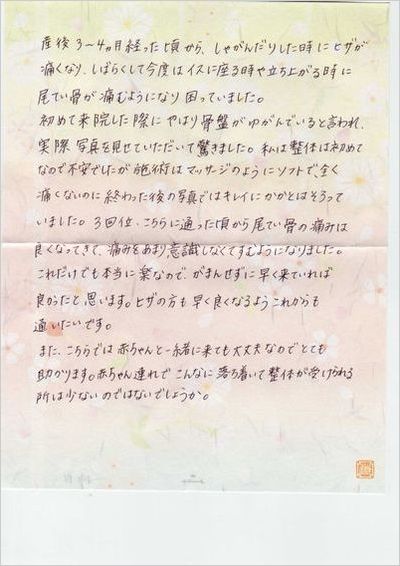 産後3〜4ヵ月経った頃から、しゃがんだりした時にヒザが
痛くなり、しばらくして今度はイスに座る時や立ち上がる時に
尾てい骨が痛むようになり困っていました。
初めて来院した際にやはり骨盤がゆがんでいると言われ、
実際写真を見せていただいて驚きました。私は整体は初めて
なので不安でしたが施術はマッサージのようにソフトで、全く
痛くないのに終わった後の写真ではキレイにかかとはそろって
いました。3回位、こちらに通った頃から尾てい骨の痛みは
良くなってきて、痛みをあまり意識しなくてすむようになりました。
これだけでも本当に楽なので、がまんせずに早く来ていれば
良かったと思います。ヒザの方も早く良くなるようこれからも
通いたいです。
また、こちらでは赤ちゃんと一緒に来ても大丈夫なのでとても
助かります。赤ちゃん連れでこんなに落ち着いて整体が受けられる
所は少ないのではないでしょうか。